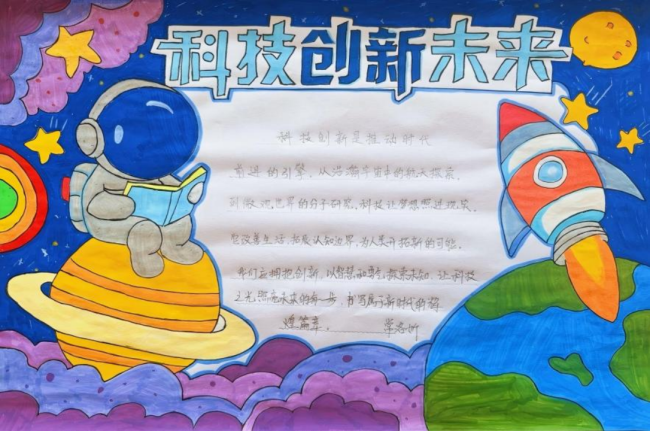 科技创新未来
科技创新是推动时代
前进的引擎。从浩瀚宇宙中的航天探索,
到微观世界的分子研究,科技让梦想照进现实。
它改善生活,拓展认知边界,为人类开拓新的可能。
我们应拥抱创新,以智慧和勇气探索未知,让科技
之光照亮未来的每一步,书写属于新时代的辉
煌篇章。